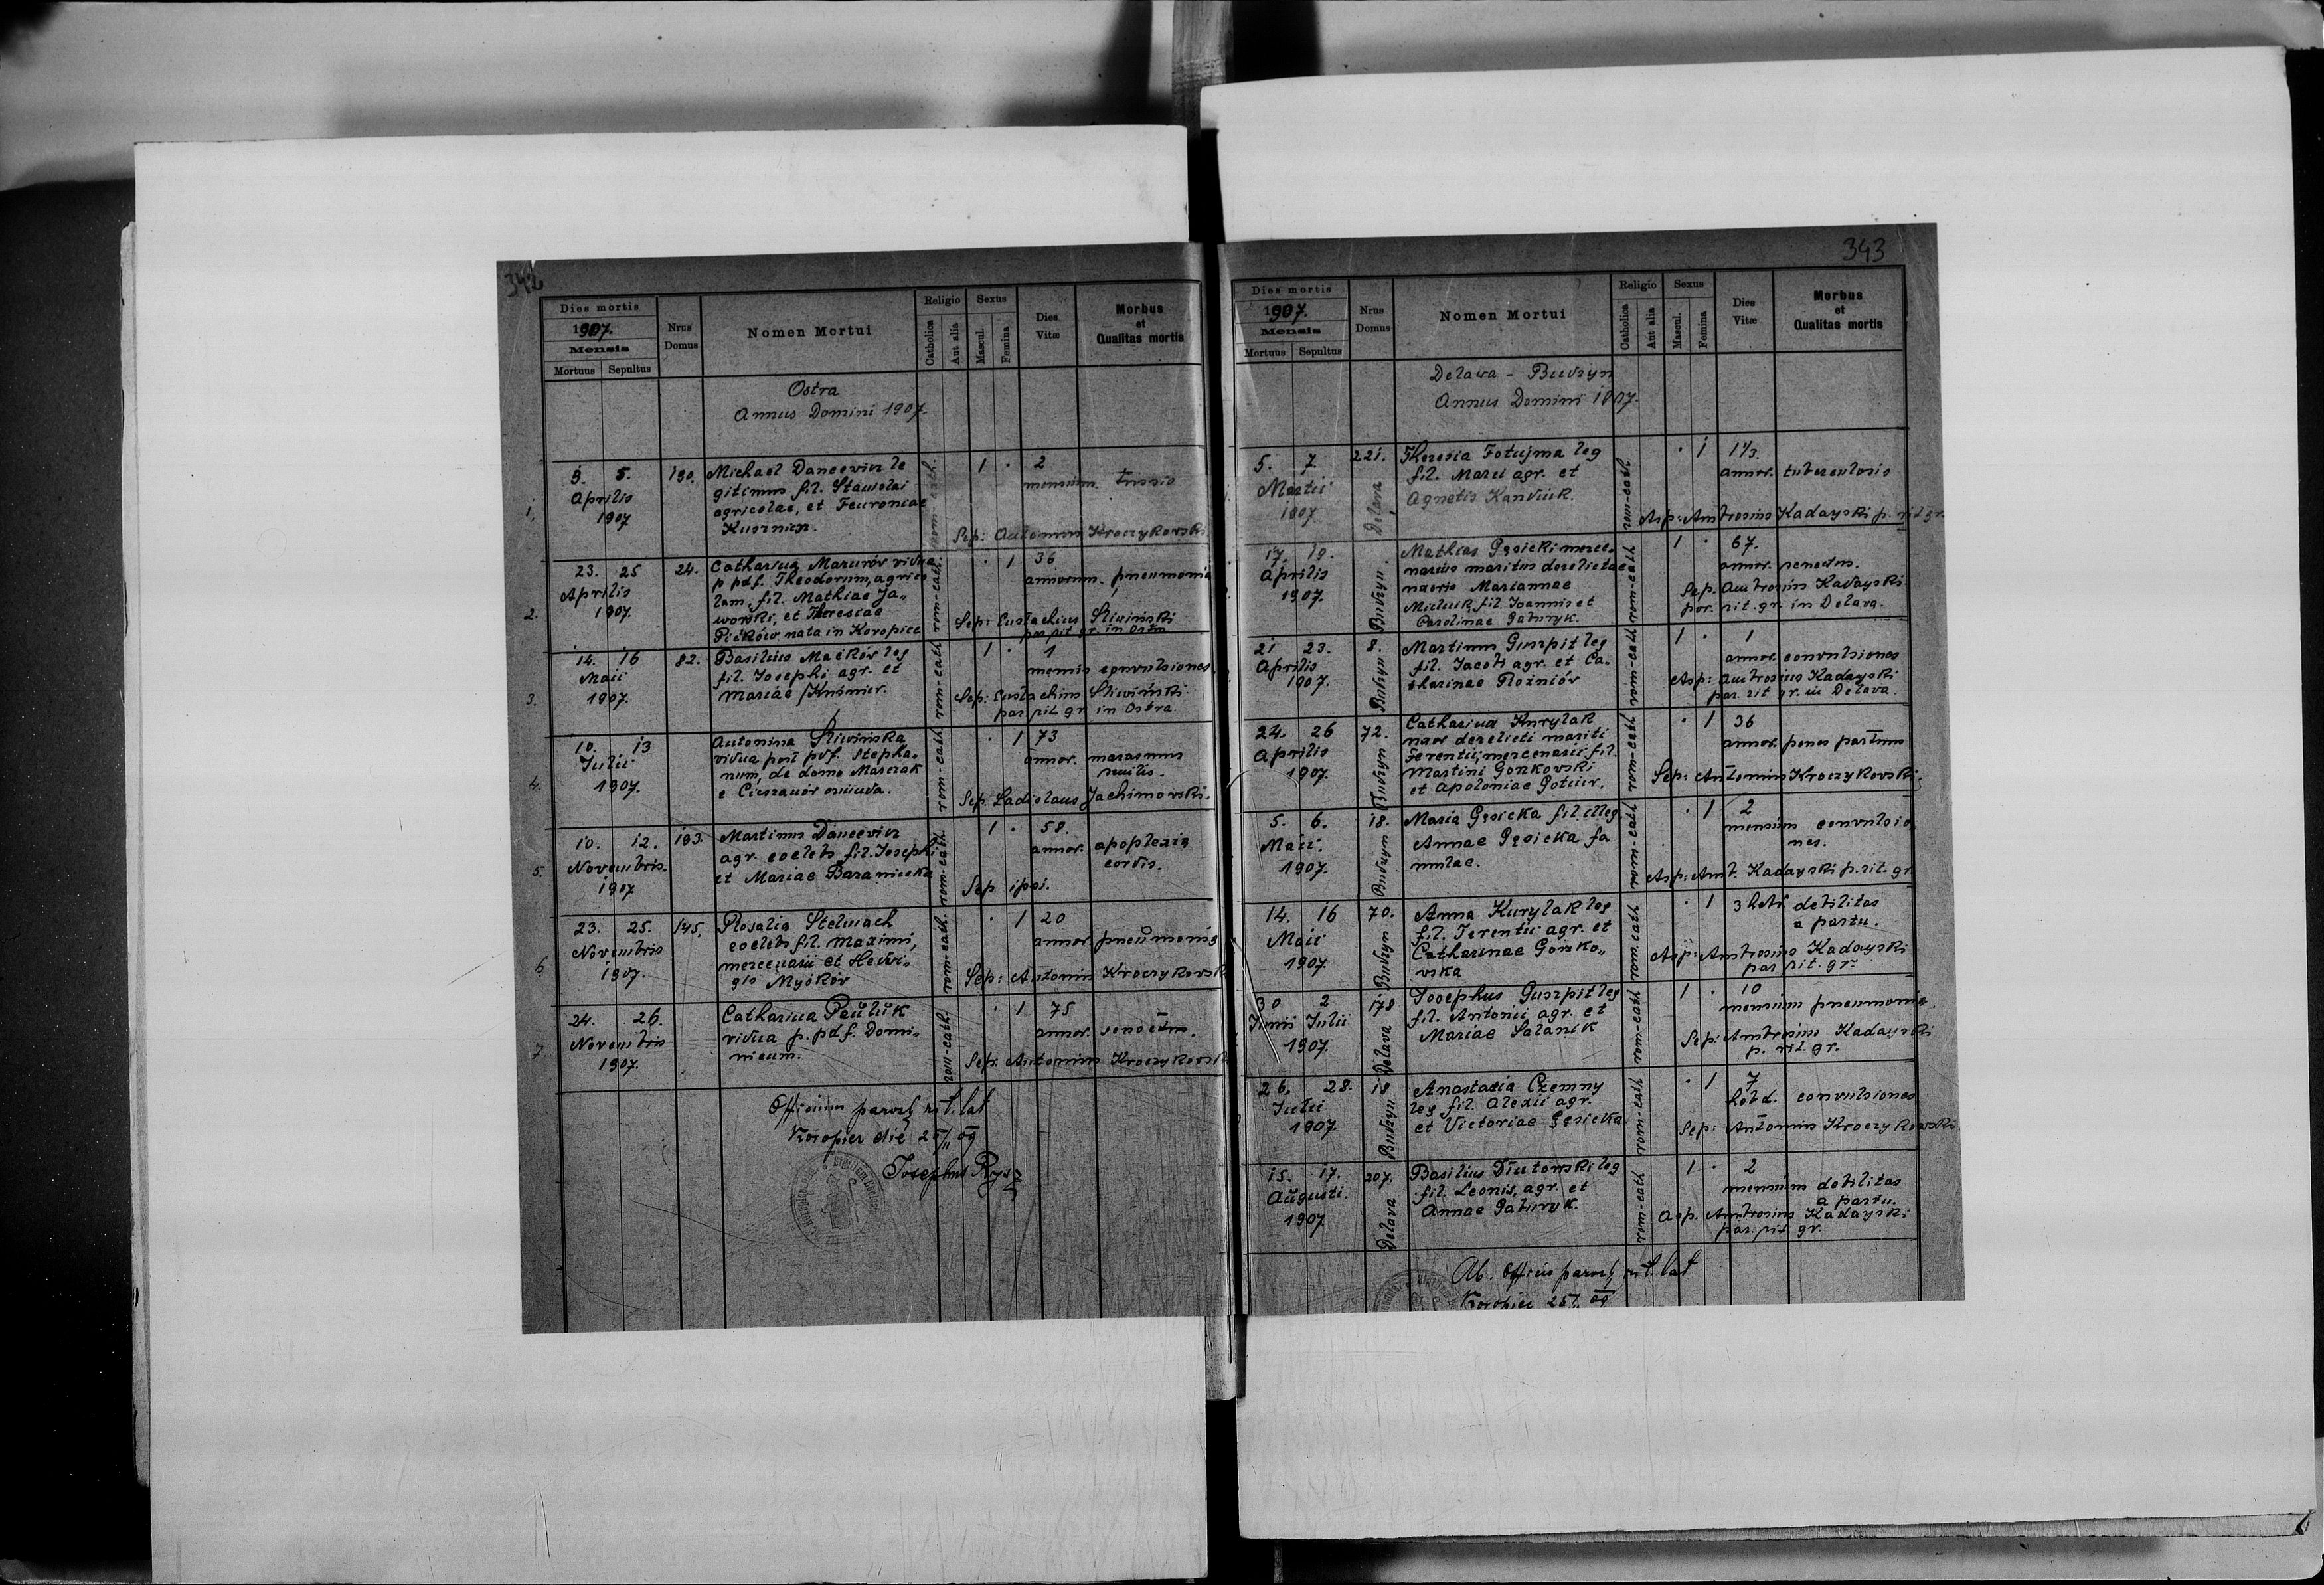 342
Dies mortis
1907.
Mensis
Mortuus Sepultus
Nrus Domus
Nomen Mortui
Religio
Catholica
Aut alia
Sexus
Mascul.
Femina
Dies Vitæ
Morbus et Qualitas mortis
Ostra
Annus Domini 1907.
1.
3. 5. 190. Michael Dancewicz le 1 . 2
Aprilis gitimus fil. Stanislai mensium tussis
1907 agricolae, et Feuroniae
Kusznier. rom-cath.
Sep: Antonius Kroczykowski
2.
23. 25 24. Catharina Mazurów vidua . 1 36
Aprilis p pdf. Theodorum, agrico annorum. pneumonia
1907. lam, fil. Mathiae Ja„
worski, et Theresiae
Pićków nata in Koropiec rom-cath.
Sep: Eustachius Sliwiński
par. rit. gr. in Ostra
3.
14. 16 82. Basilius Maćków leg 1 . 1
Maii fil. Josephi agr. et mensis convulsiones
1907. Mariae Kuśnier. rom-cath
Sep: Eustachius Sliwiński
par. rit. gr. in Ostra.
4.
10. 13 Antonina Sliwińska . 1 73
Julii vidua post pdf. Stepha„ annor. marasmus
1907. num, de domo Marczak senilis.
e Cieszanów oriunda. rom-cath
Sep. Ladislaus Jachimowski.
5.
10. 12. 193. Martinus Dancewicz 1 . 58.
Novembris. agr. coelebs, fil. Josephi annor. apoplexia
1907 et Mariae Baraniecka cordis.
rom-cath.
Sep ipsi.
6
23. 25. 145. Rosalia Stelmach . 1 20
Novembris coelebs fil. Maximi, annor. pneŭmonia
1907. mercenarii et Hedvi„
gis Myśków rom-cath.
Sep: Antonius Kroczykowski
7.
24. 26. Catharina Paŭluk . 1 75
Novembris vidua p. pdf. Domi„ annor. senectus.
1907. nicum. rom-cath.
Sep: Antonius Kroczykowski
Officium paroch rit. lat
Koropiec die
Josephus Rysz
343
Dies mortis
1907.
Mensis
Mortuus Sepultus
Nrus Domus
Nomen Mortui
Religio
Catholica
Aut alia
Sexus
Mascul.
Femina
Dies Vitæ
Morbus et Qualitas mortis
Delawa - Budzyn
Annus Domini 1907.
5. 7. 221. Theresia Fotujma leg . 1 1 1/3.
Martii Delava fil. Marci agr. et annor. tuberculosis
1907 Agnetis Kandiuk. rom-cath
Asp: Ambrosius Kadayski p. rit gr.
17. 19. Budzyn. Mathias Gęsicki merce„ 1 . 67.
Aprilis narius maritus derelictae annor. senectus.
1907. uxoris Mariannae
fil. Joannis et
Carolinae Paturyk. rom-cath
Sep. Ambrosius Kadayski
par. rit. gr. in Delava.
21 23. 8. Martinus Guszpit leg 1 . 1
Aprilis fil. Jacobi agr. et Ca„ annor. convulsiones
1907. tharinae Rożniów rom-cath
Asp: Ambrosius Kadayski
par. rit gr. in Delava.
24. 26 72. Catharina Kurylak . 1 36
Aprilis Budzyn uxor derelicti mariti annor. penes partum
1907. Terentii, mercenarii fil.
Martini Gonkowski
et Apoloniae rom-cath
Sep: Antonius Kroczykowski.
5. 6. 18. Maria Gęsicka fil. illeg . 1 2
Maii. Budzyn Annae Gęsicka fa mensium convulsio
1907. mulae. nes.
rom-cath
Asp: Amb. Kadayski p. rit. gr
14. 16 70. Anna Kurylak leg . 1 3 hebd. debilitas
Maii Budzyn fil. Terentii agr. et a partu.
1907. Catharinae Gonko„
wska rom-cath
Asp: Ambrosius Kadayski
par rit. gr.
30 2 178 Josephus Guszpit leg 1 . 10
Junii Julii Delava fil. Antonii agr. et mensium pneumonia.
1907. Mariae Salanik rom-cath
Sep: Ambrosius Kadayski
p. rit. gr.
26. 28. 18 Anastasia Czemny . 1 7
Julii Budzyn leg fil. Alexii agr. hebd. convulsiones
1907. et Victoriae Gęsicka rom-cath
Sep: Antonius Kroczykowski
15. 17. 207. Basilius Dłutowski leg 1 . 2
Aŭgusti. Delava fil. Leonis, agr. et mensium debilitas
1907. Annae Paturyk. a partu.
rom-cath
Asp. Ambrosius Kadayski
par. rit. gr.
Ab. Officio paroch rit. lat
Koropiec